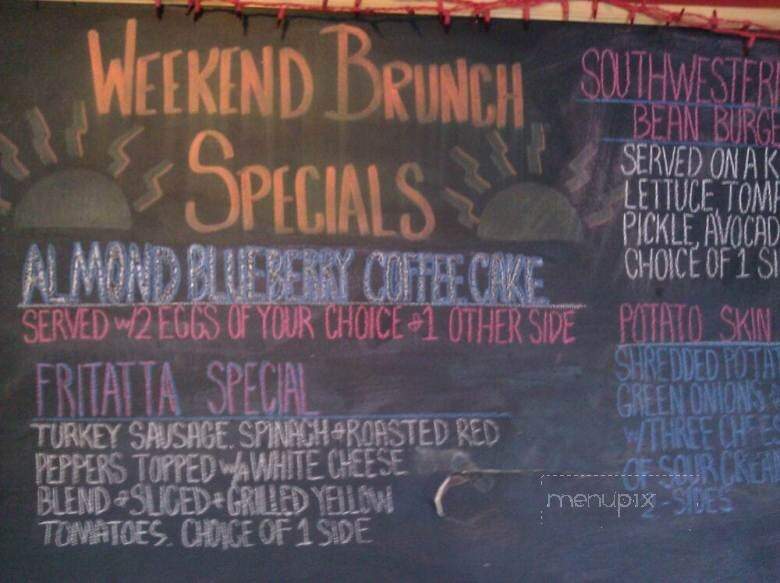 WEEKEND BRUNCH
SPECIALS
ALMOND BLUEBERRY COFFEE CAKE
SERVED w/2 EGGS OF YOUR CHOICE +1 OTHER SIDE
FRITATTA SPECIAL
TURKEY SAUSAGE, SPINACH + ROASTED RED
PEPPERS TOPPED w/A WHITE CHEESE
BLEND + SLICED + GRILLED YELLOW
TOMATOES. CHOICE OF 1 SIDE
SOUTHWESTER
BEAN BURGE
SERVED ON A K
LETTUCE TOM
PICKLE, AVOCAD
CHOICE OF 1 SI
POTATO SKIN
SHREDDED POTA
GREEN ONIONS
w/THREE CHEE
OF SOUR CREA
2 - SIDES
menupix